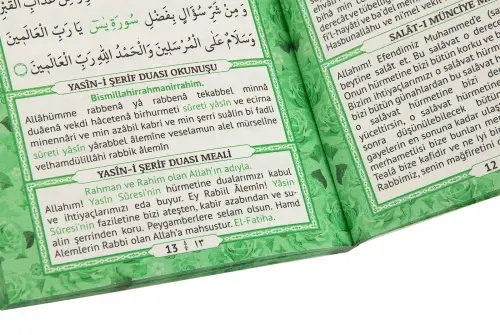 وَمِنْ شَرِّ سُؤَالٍ بِفَضْلِ سُورَةِ يٰسٓ يَا رَبَّ الْعَالَمِينَ
وَسَلَامٌ عَلَى الْمُرْسَلِينَ وَالْحَمْدُ لِلّٰهِ رَبِّ الْعَالَمِينَ
YASÎN-İ ŞERİF DUASI OKUNUŞU
Bismillahirrahmanirrahim.
Allâhümme rabbenâ yâ rabbenâ tekabbel minnâ
duâenâ vekdi hâcetenâ birhurmeti sûreti yâsîn ve ecirna
minennâri ve min azâbil kabri ve min şerri suâlin bi fadli
sûreti yâsîn yârabbel âlemîne veselamun alel mürselîne
velhamdülillâhi rabbil âlemîn
YASÎN-İ ŞERİF DUASI MEALİ
Rahman ve Rahim olan Allah'ın adıyla.
Allahım! Yasîn Sûresi'nin hürmetine dualarımızı kabul
ve ihtiyaçlarımızı eda buyur. Ey Rabiil Âlemin! Yasîn
Sûresi'nin faziletine bizi ateşten, kabir azabından ve su-
alin şerrinden koru. Peygamberlere selam olsun. Hamd
Alemlerin Rabbi olan Allah'a mahsustur. El-Fatiha.
13 ١٣
Hasbunallâhu ve ni'mel vekîl
SALÂT-I MÜNCİYE
Allahım! Efendimiz Muhammed'e
beytine salât et. Bu salâvat o derece
Onun hürmetine bizi bütün korku ve
Bizim ihtiyaçlarımızı o salâvat hürmetine
bizi bütün günahlardan bu salâvat
o salâvat hürmetine bizi
yüceltirsin, o salâvat hürmetine
sonra düşünülebilecek bütün
gayelerin en sonuna kadar
merhametlisi bize bunları
Teala bize kafidir ve ne iyi
Rabbimiz, senin mağfiretini
12